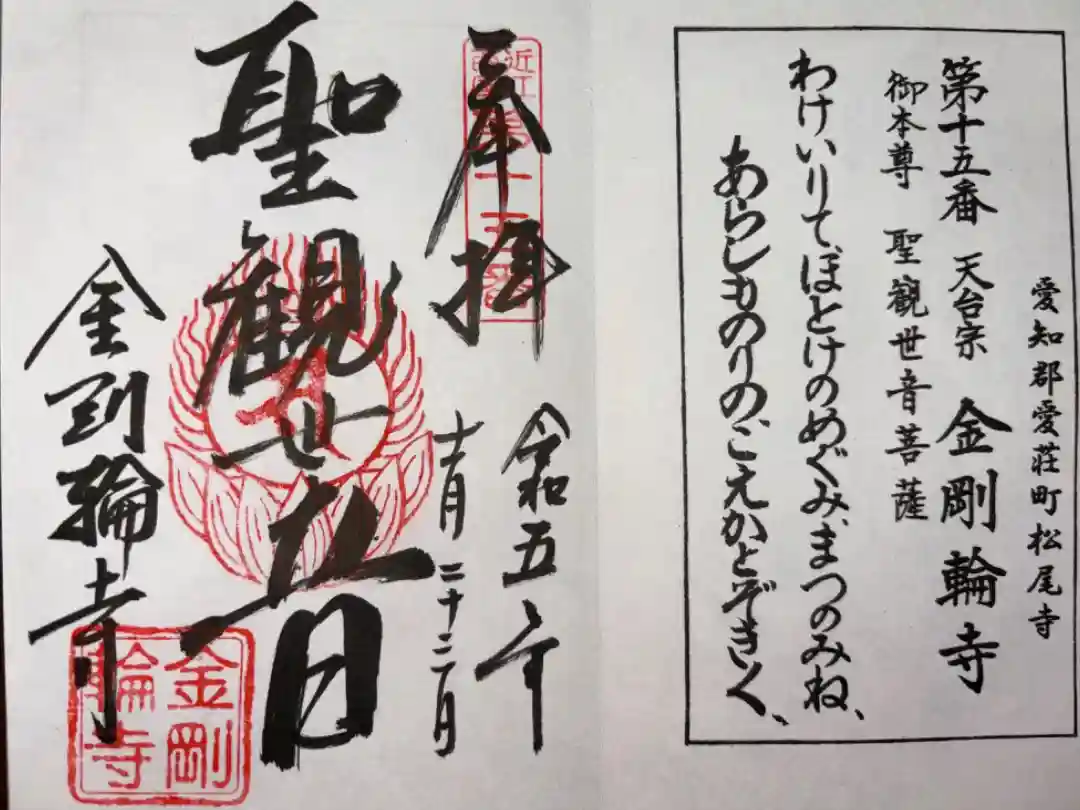 愛知郡愛荘町松尾寺
第十五番 天台宗 金剛輪寺
御本尊 聖観世音菩薩
わけいりてほとけのめぐみまつのみね、
あらしものりのこえかとぞきく、
奉拝
近江
第十五番
令和五年
十一月二十二日
聖観世音
金剛輪寺
金剛
輪寺